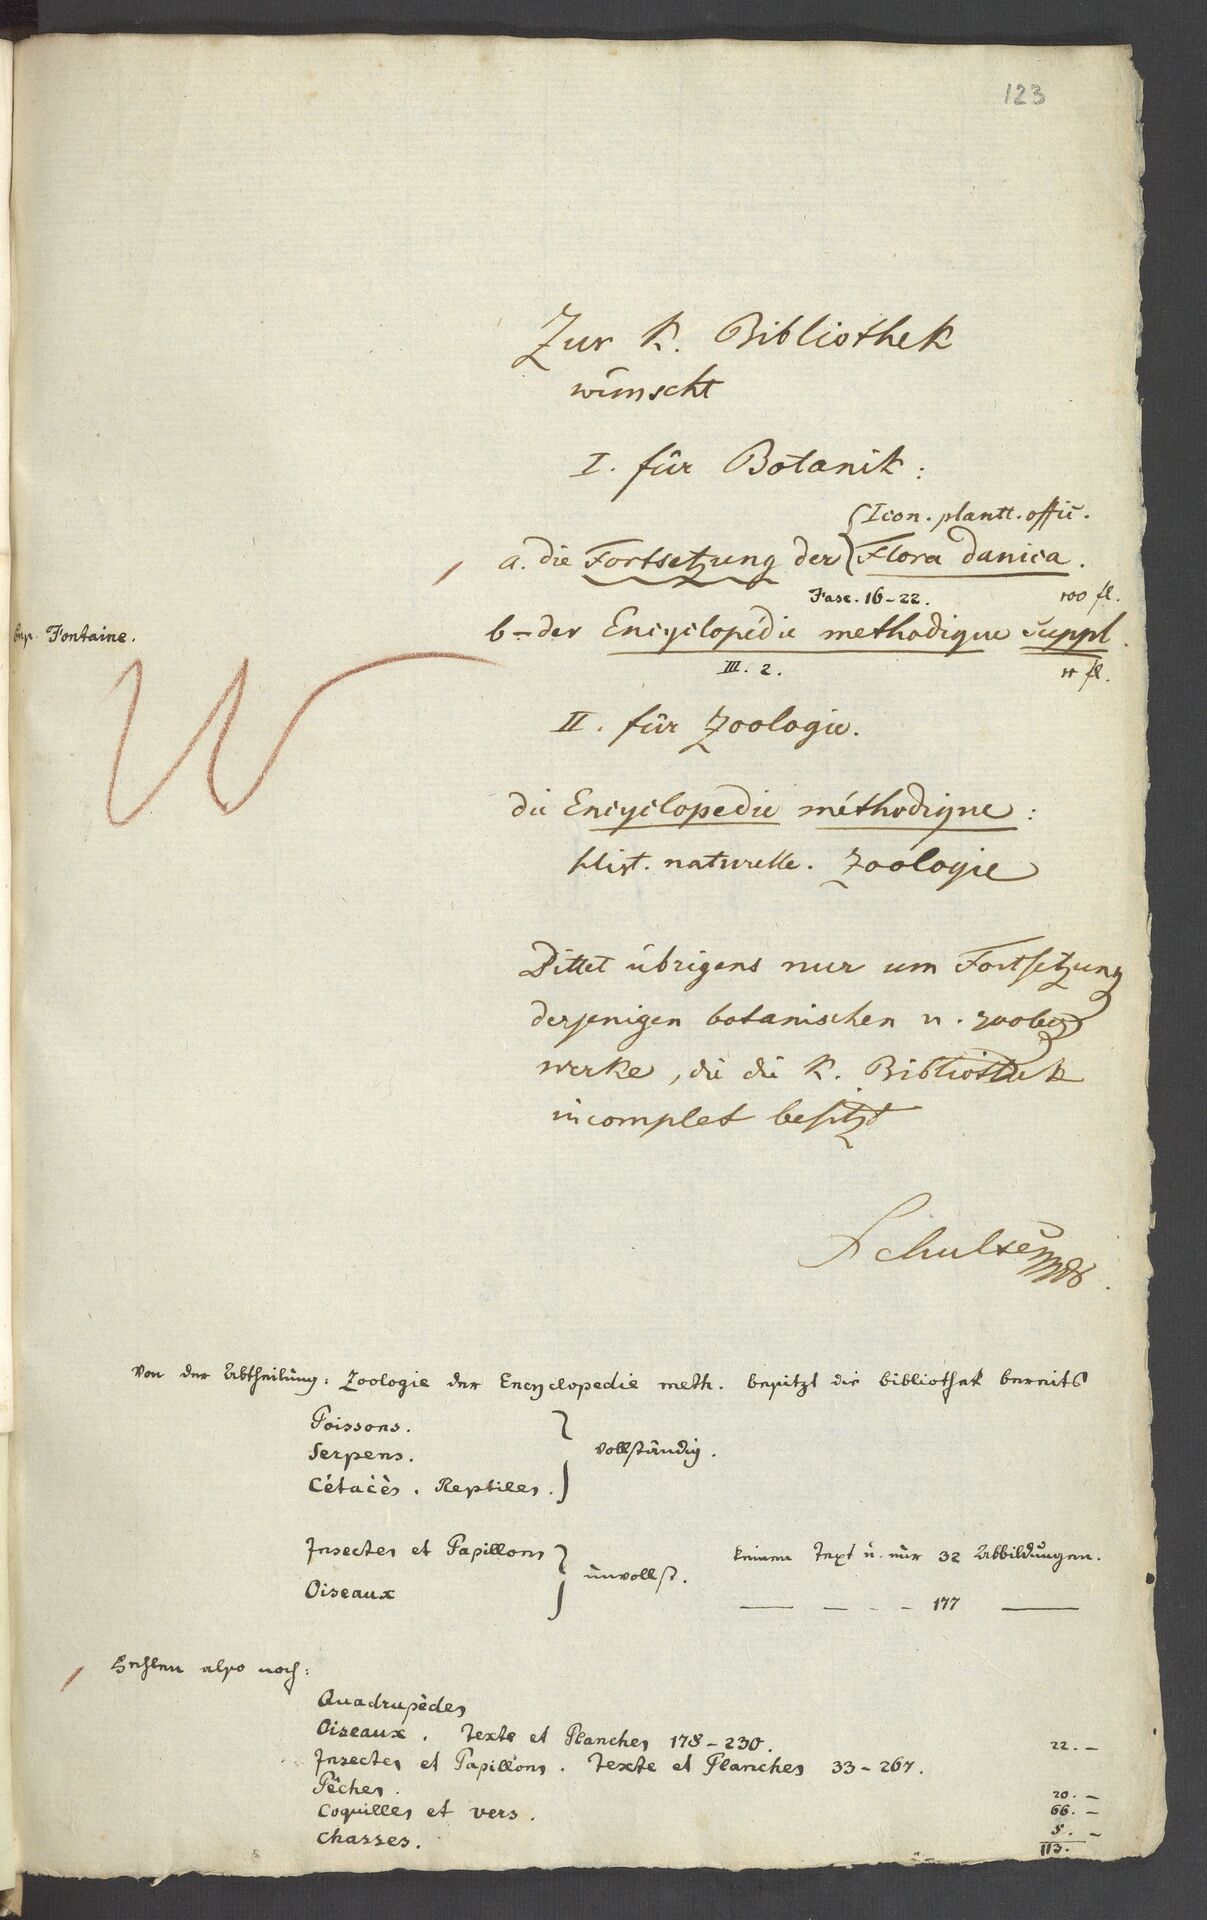 123
Zur K. Bibliothek
wünscht
I. für Botanik:
Icon. plantt. offic.
a. die Fortsetzung der Flora danica.
Fasc. 16-22. 100 fl.
Fontaine.
b - der Encyclopédie methodique Suppl.
III. 2. 11 fl.
II. für Zoologie.
die Encyclopedie méthodique:
Hist. naturelle. Zoologie
Bittet übrigens nur um Fortsetzung
derjenigen botanischen u. zoolog
werke, die die K. Bibliothek
incomplet besitzt
Schultes
Von der Abtheilung: Zoologie der Encyclopedie meth. besitzt die Bibliothek bereits
Poissons.
Serpens. vollständig.
Cétacès. Reptiles.
Insectes et Papillons keinen Text u. nur 32 Abbildungen.
unvollst.
Oiseaux — — - - 177 —
Fehlen also noch:
Quadrupèdes
Oiseaux. Texte et Planches 178-230. 22. -
Insectes et Papillons. Texte et Planches 33-267.
Pêches. 20. -
Coquilles et vers. 66. -
Chasses. 5. -
113.